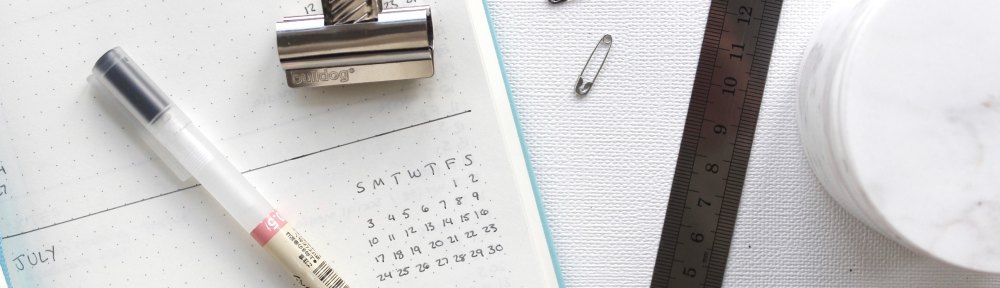 12
bulldog®
S M T W T F S
1 2
3 4 5 6 7 8 9
10 11 12 13 14 15 16
17 18 19 20 21 22 23
24 25 26 27 28 29 30
JULY
12
11
10
9
8
7
6
5